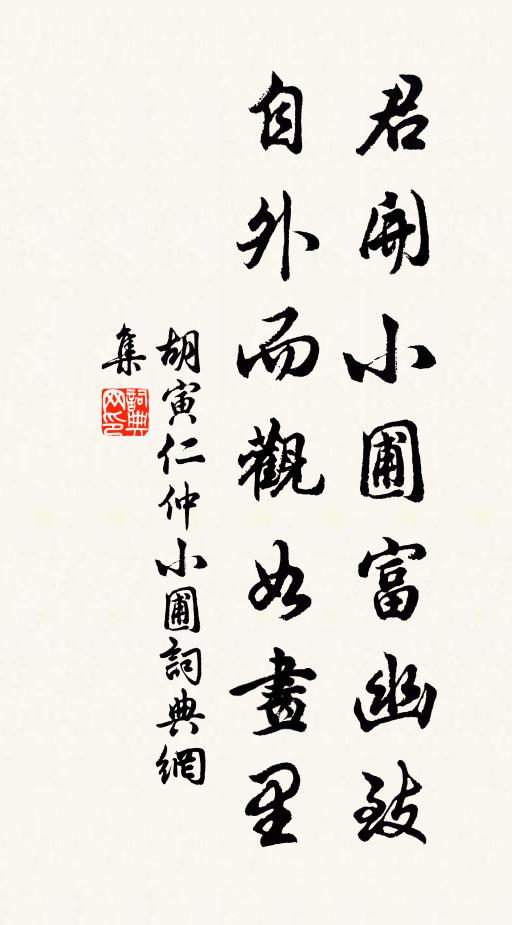 君開小圃富幽致
自外而觀如畫里
胡寅仁仲小圃詞典網
集
詞典网印